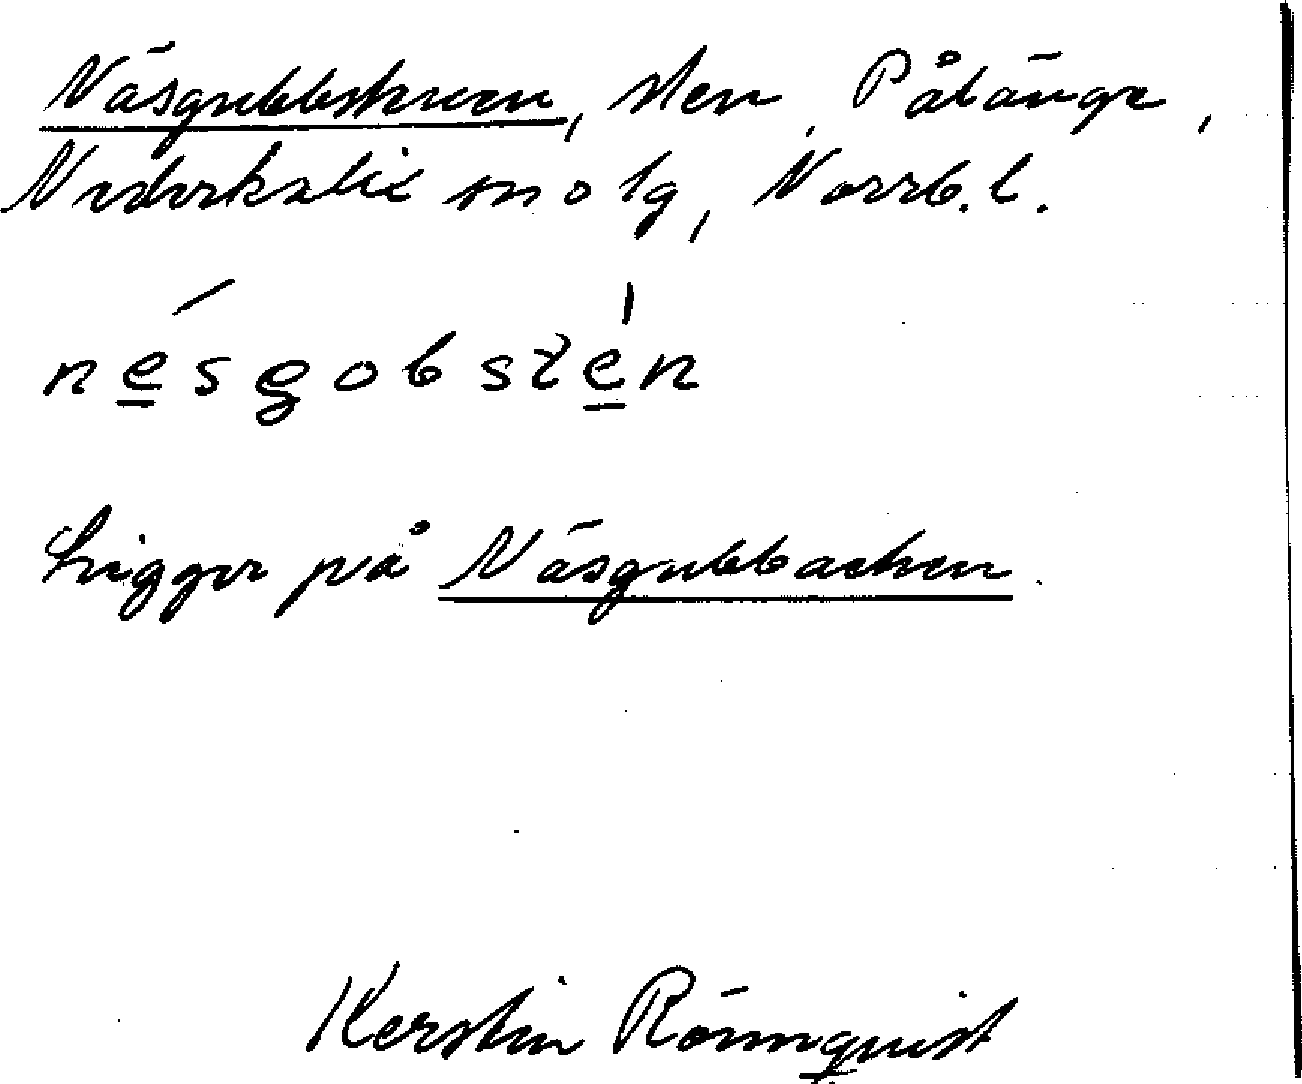 Näsgubbstenen, sten, Pålänge,
Nederkalix sn o lg, Norrb. l.
nesgobsten
Ligger på Näsgubbacken.
Kerstin Rönnquist